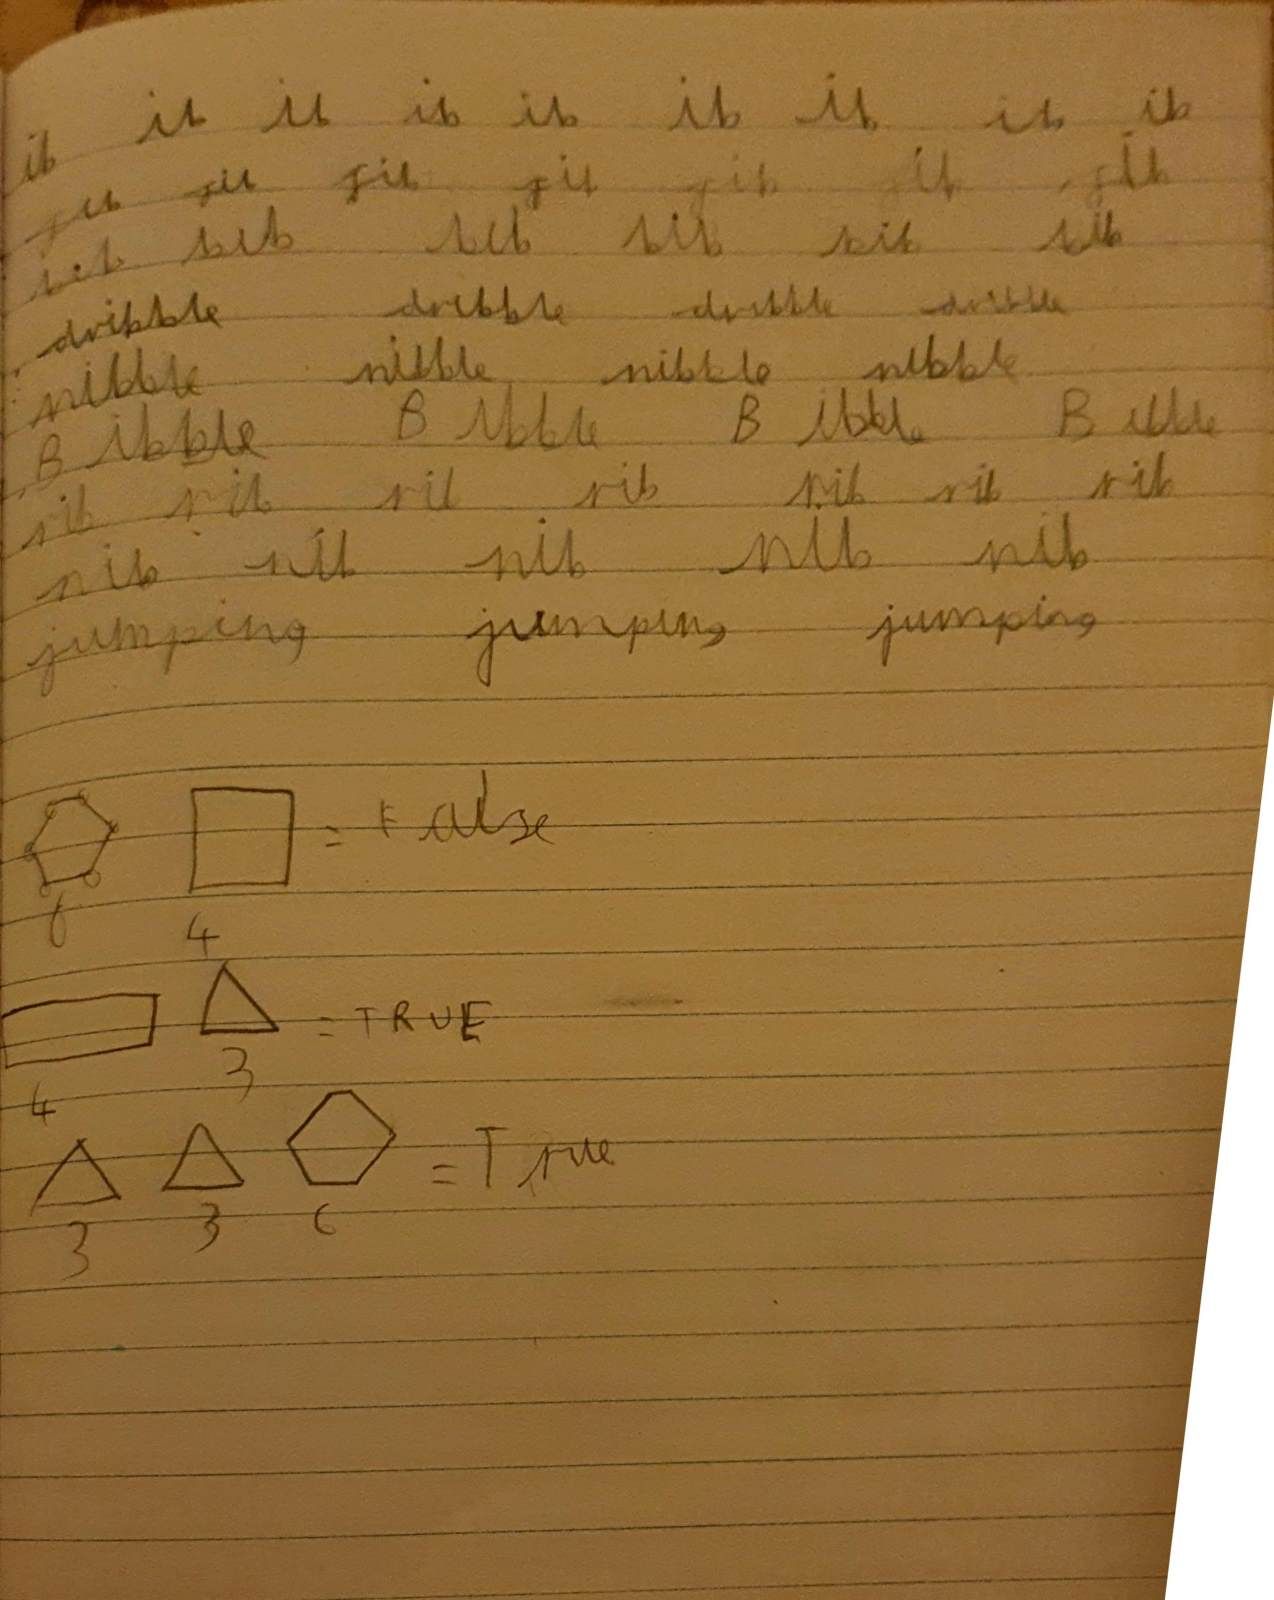 ib ib ib ib ib ib ib ib ib
fib fib fib fib fib fib fib
bib bib bib bib bib bib
dribble dribble dribble dribble
nibble nibble nibble nibble
B ibble B ibble B ibble B ibble
rib rib rib rib rib rib rib
nib nib nib nib nib
jumping jumping jumping
= False
6 4
= TRUE
4 3
= True
3 3 6